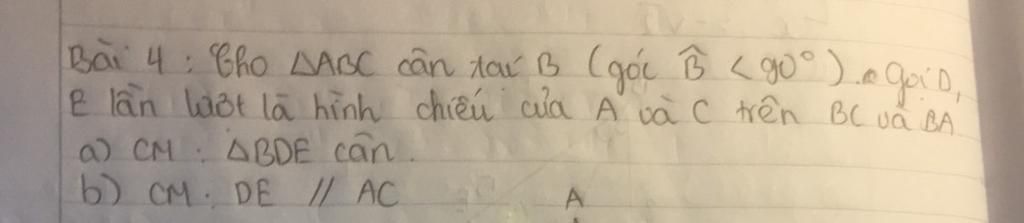 Bài 4 : Cho ΔABC cân tại B (góc B̂ < 90°). Gọi D,
E lần lượt là hình chiếu của A và C trên BC và BA
a) CM : ΔBDE cân.
b) CM : DE // AC
A